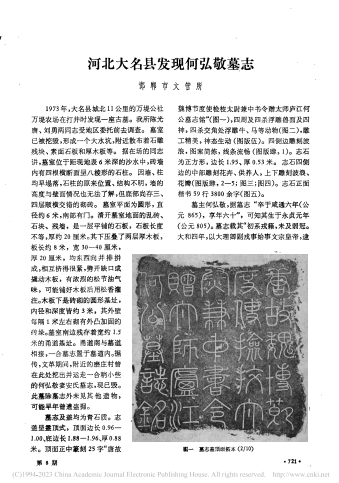 河北大名县发现何弘敬墓志
邯郸市文管所
1973年,大名县城北11公里的万堤公社
万堤农场在打井时发现一座古墓。我所陈光
唐、刘勇两同志受地区委托前去调查。墓室
已被挖毁,形成一个大水坑,附近散布着石雕
残块、素面石板和厚木板等。据在场的同志
讲,墓室位于距现地表6米深的沙水中,砖墙
内有四根横断面呈八棱形的石柱。因墙、柱
均早塌落,石柱的原来位置、结构不明,墙的
高度与壁面情况也无法了解,但底部尚存三、
四层顺横交错的铺砖。墓室平面为圆形,直
径约6米,南部有门。清开墓室地面的乱砖、
石块、残墙,是一层平铺的石板,石板长度
不等,厚约20厘米,其下压叠了两层厚木板,
板长约8米,宽30—40厘米,
厚20厘米,均东西向并排拼
成,相互挤得很紧,劈开缺口或
撬动木板,有浓烈的松节油气
味,可能铺好木板后用松香灌
注。木板下是砖砌的圆形墓址,
内径和深度皆约3米,其外壁
每隔1米左右砌有外凸加固的
砖垛。墓室南边残存着宽约1.5
米的甬道墓址。甬道南与墓道
相接,一合墓志置于墓道内。据
传,文革期间,附近的磨庄村曾
在此处挖出并运走一合稍小些
的何弘敬妻安氏墓志,现已毁。
此墓除墓志外未见其他遗物,
可能早年曾遭盗掘。
墓志及盖均为青石质。志
盖呈盝顶式,顶面边长0.96—
1.00、底边长1.88—1.96、厚0.88
米。顶面正中篆刻25字“唐故
魏博节度使检校太尉兼中书令赠太师庐江何
公墓志铭”(图一),四周及四杀浮雕兽面及四
神,四杀交角处浮雕牛、马等动物(图二),雕
工精美,神志生动(图版伍)。四侧边雕刻流
散,图案简炼,线条流畅(图版肆,1)。志石
为正方形,边长1.95、厚0.53米。志石四侧
边的中部雕刻花卉、供养人,上下雕刻波浪、
花瓣(图版肆,2—5;图三;图四)。志石正面
楷书59行3800余字(图五)。
墓主何弘敬,据墓志“辛于咸通六年(公
元865),享年六十”,可知其生于永贞元年
(公元805)。墓志载其“初系戎籍,未及弱冠。
大和四年,以大理卿剧戎事始事文宗皇帝,逮
图一 墓志盖顶面拓本(2/10)
第8期
·721·
(C)1994-2023 China Academic Journal Electronic Publishing House. All rights reserved. http://www.cnki.net